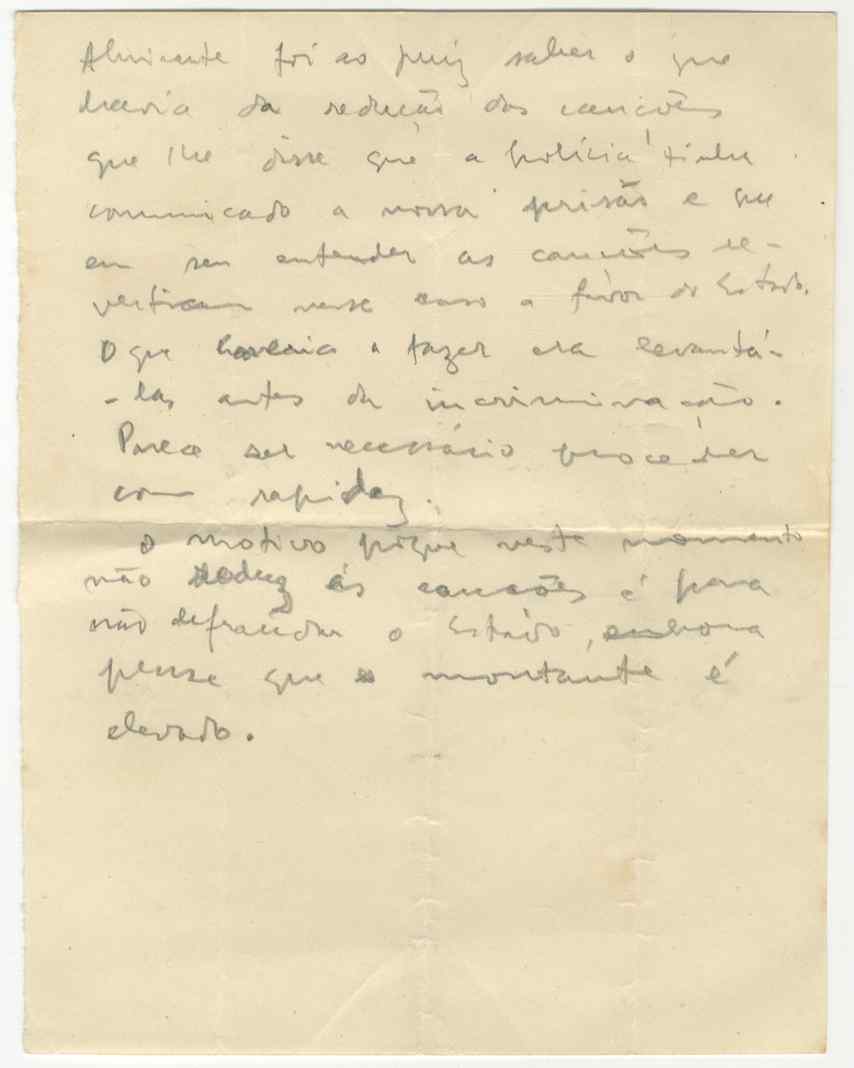 Almirante foi ao juiz saber o que
havia da redução das cauções
que lhe disse que a polícia tinha
comunicado a nossa prisão e que
em seu entender as cauções re-
vertiam nesse caso a favor do Estado.
O que haveria a fazer era levantá-
-las antes da incriminação.
Parece ser necessário proceder
com rapidez.
O motivo porque neste momento
não reduz as cauções é para
não defraudar o Estado, embora
pense que o montante é
elevado.